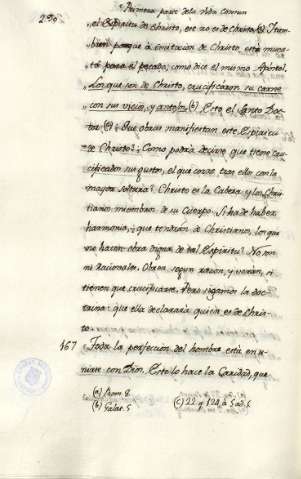 290 Primera parte dela Vida Comun
el Espiritu de Christo, ese no es de Christo (a) Tam-
bien porque à imitacion de Christo, està muer-
to para el pecado, como dice el mismo Apostol.
Los que son de Christo, crucificaron su carne
con sus vicios, y antojos (b) Esto el Santo Doc-
tor (c) Que obras manifiestan este Espiritu
de Christo? Como podrà decirse que tiene cru-
cificados sus gustos, el que corre tras ello con la
mayor soltura? Christo es la Cabeza, y los Chris-
tianos miembros de su Cuerpo. Si ha de haber
harmonia, que tendràn de Christianos, los que
no hacen obra digna de tal Espiritu? No son
ni Racionales. Obren segun razon, y veràn, si
tienen que crucificarse. Pero sigamos la doc-
trina: que ella declararà quien es de Chris-
to.
467 Toda la perfeccion del hombre està en u-
nirse con Dios. Esto lo hace la Caridad, que
(a) Rom. 8.
(b) Galat. 5 (c) 22 q 124, a 5 ad. 1